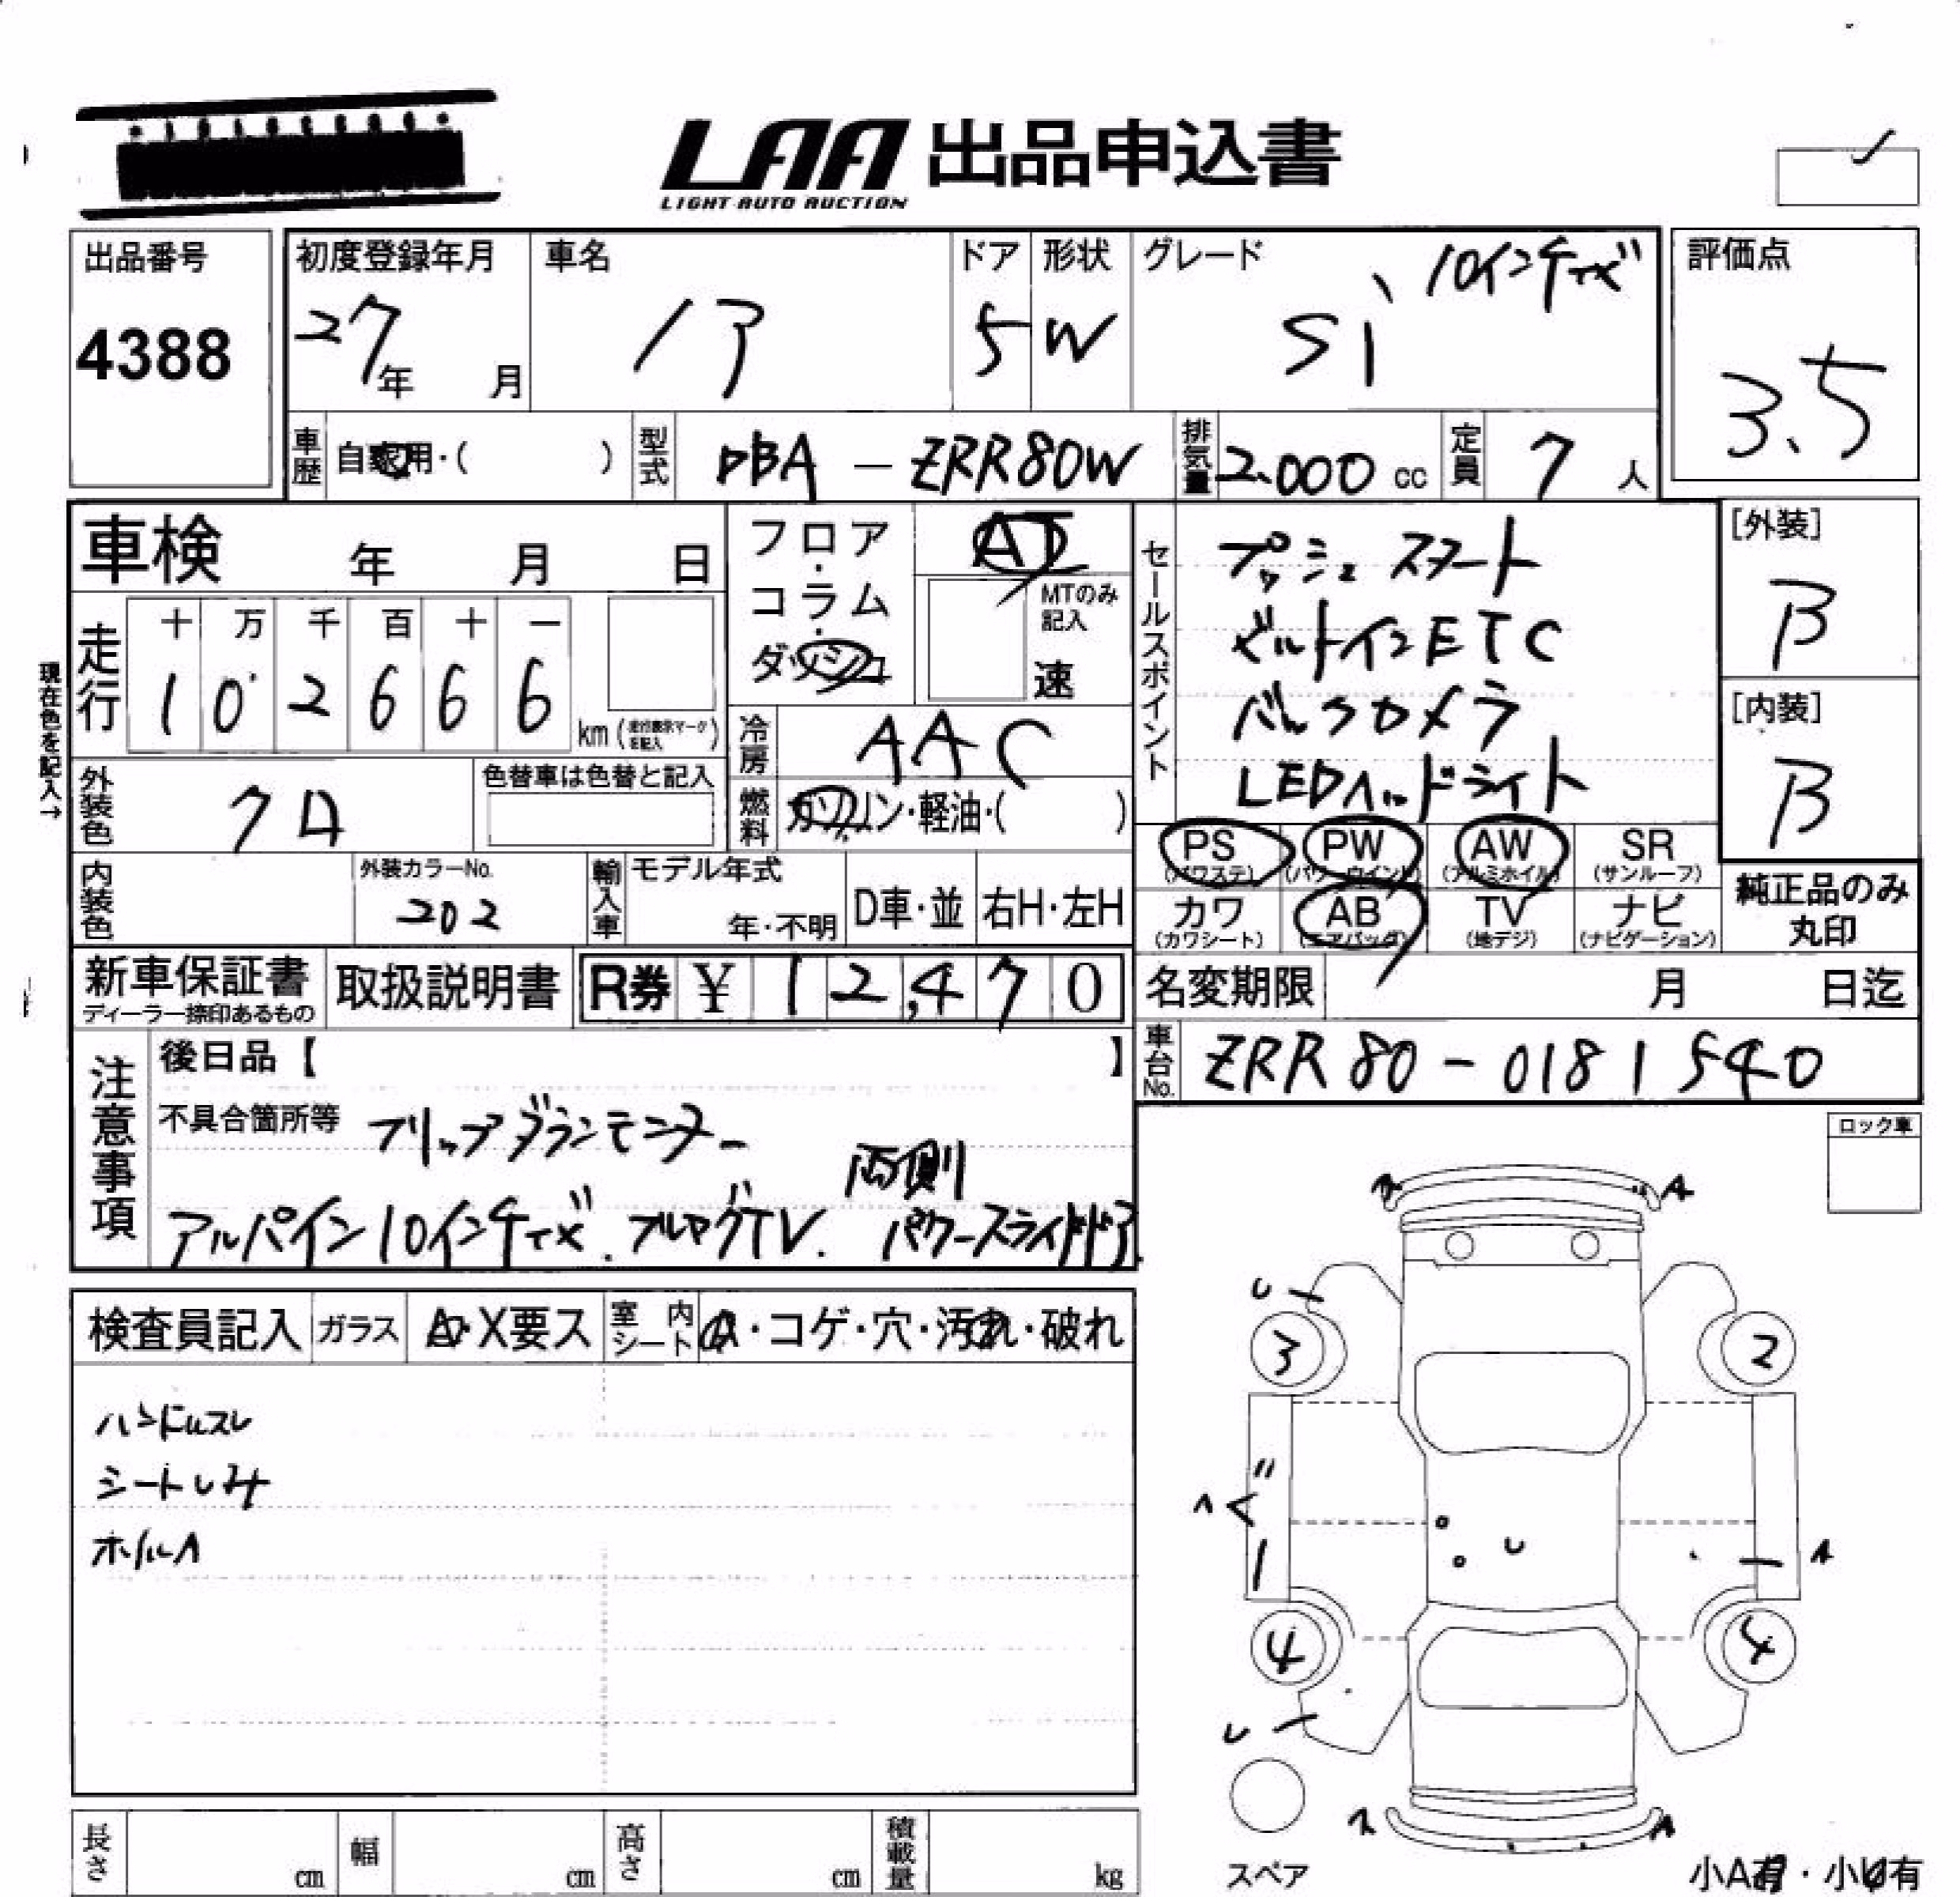 LAA 出品申込書
LIGHT AUTO AUCTION
出品番号
4388
初度登録年月
27年 月
車名
ノア
ドア
5
形状
W
グレード
Si、10インチナビ
評価点
3.5
車歴 自家用・( )
型式 DBA - ZRR80W
排気量 2.000 cc
定員 7 人
車検 年 月 日
フロア・コラム・ダッシュ
AT
MTのみ記入
速
セールスポイント
プッシュスタート
ビルトインETC
バックカメラ
LEDヘッドライト
[外装]
B
[内装]
B
現在色を記入→
走行
十 万 千 百 十 一
1 0 2 6 6 6
km (走行表示マークを記入)
冷房 AAC
外装色 クロ
色替車は色替と記入
燃料 ガソリン・軽油・( )
PS (パワステ)
PW (パワーウインド)
AW (アルミホイル)
SR (サンルーフ)
内装色
外装カラーNo.
202
輸入車
モデル年式
年・不明
D車・並
右H・左H
カワ (カワシート)
AB (エアバッグ)
TV (地デジ)
ナビ (ナビゲーション)
純正品のみ
丸印
新車保証書
ディーラー捺印あるもの
取扱説明書
R券 ¥ 12,470
名変期限 月 日迄
車台No. ZRR80-0181540
注意事項
後日品【 】
不具合箇所等 フリップダウンモニター
両側
アルパイン10インチナビ.フルセグTV. パワースライドドア
ロック車
検査員記入
ガラス
A・X要ス
室内シート
・コゲ・穴・汚れ・破れ
ハンドルスレ
シートしみ
ホイルA
A
U
3
2
ヘグ
U
A
4
4
U
A
スペア
小A有・小U有
長さ cm
幅 cm
高さ cm
積載量 kg